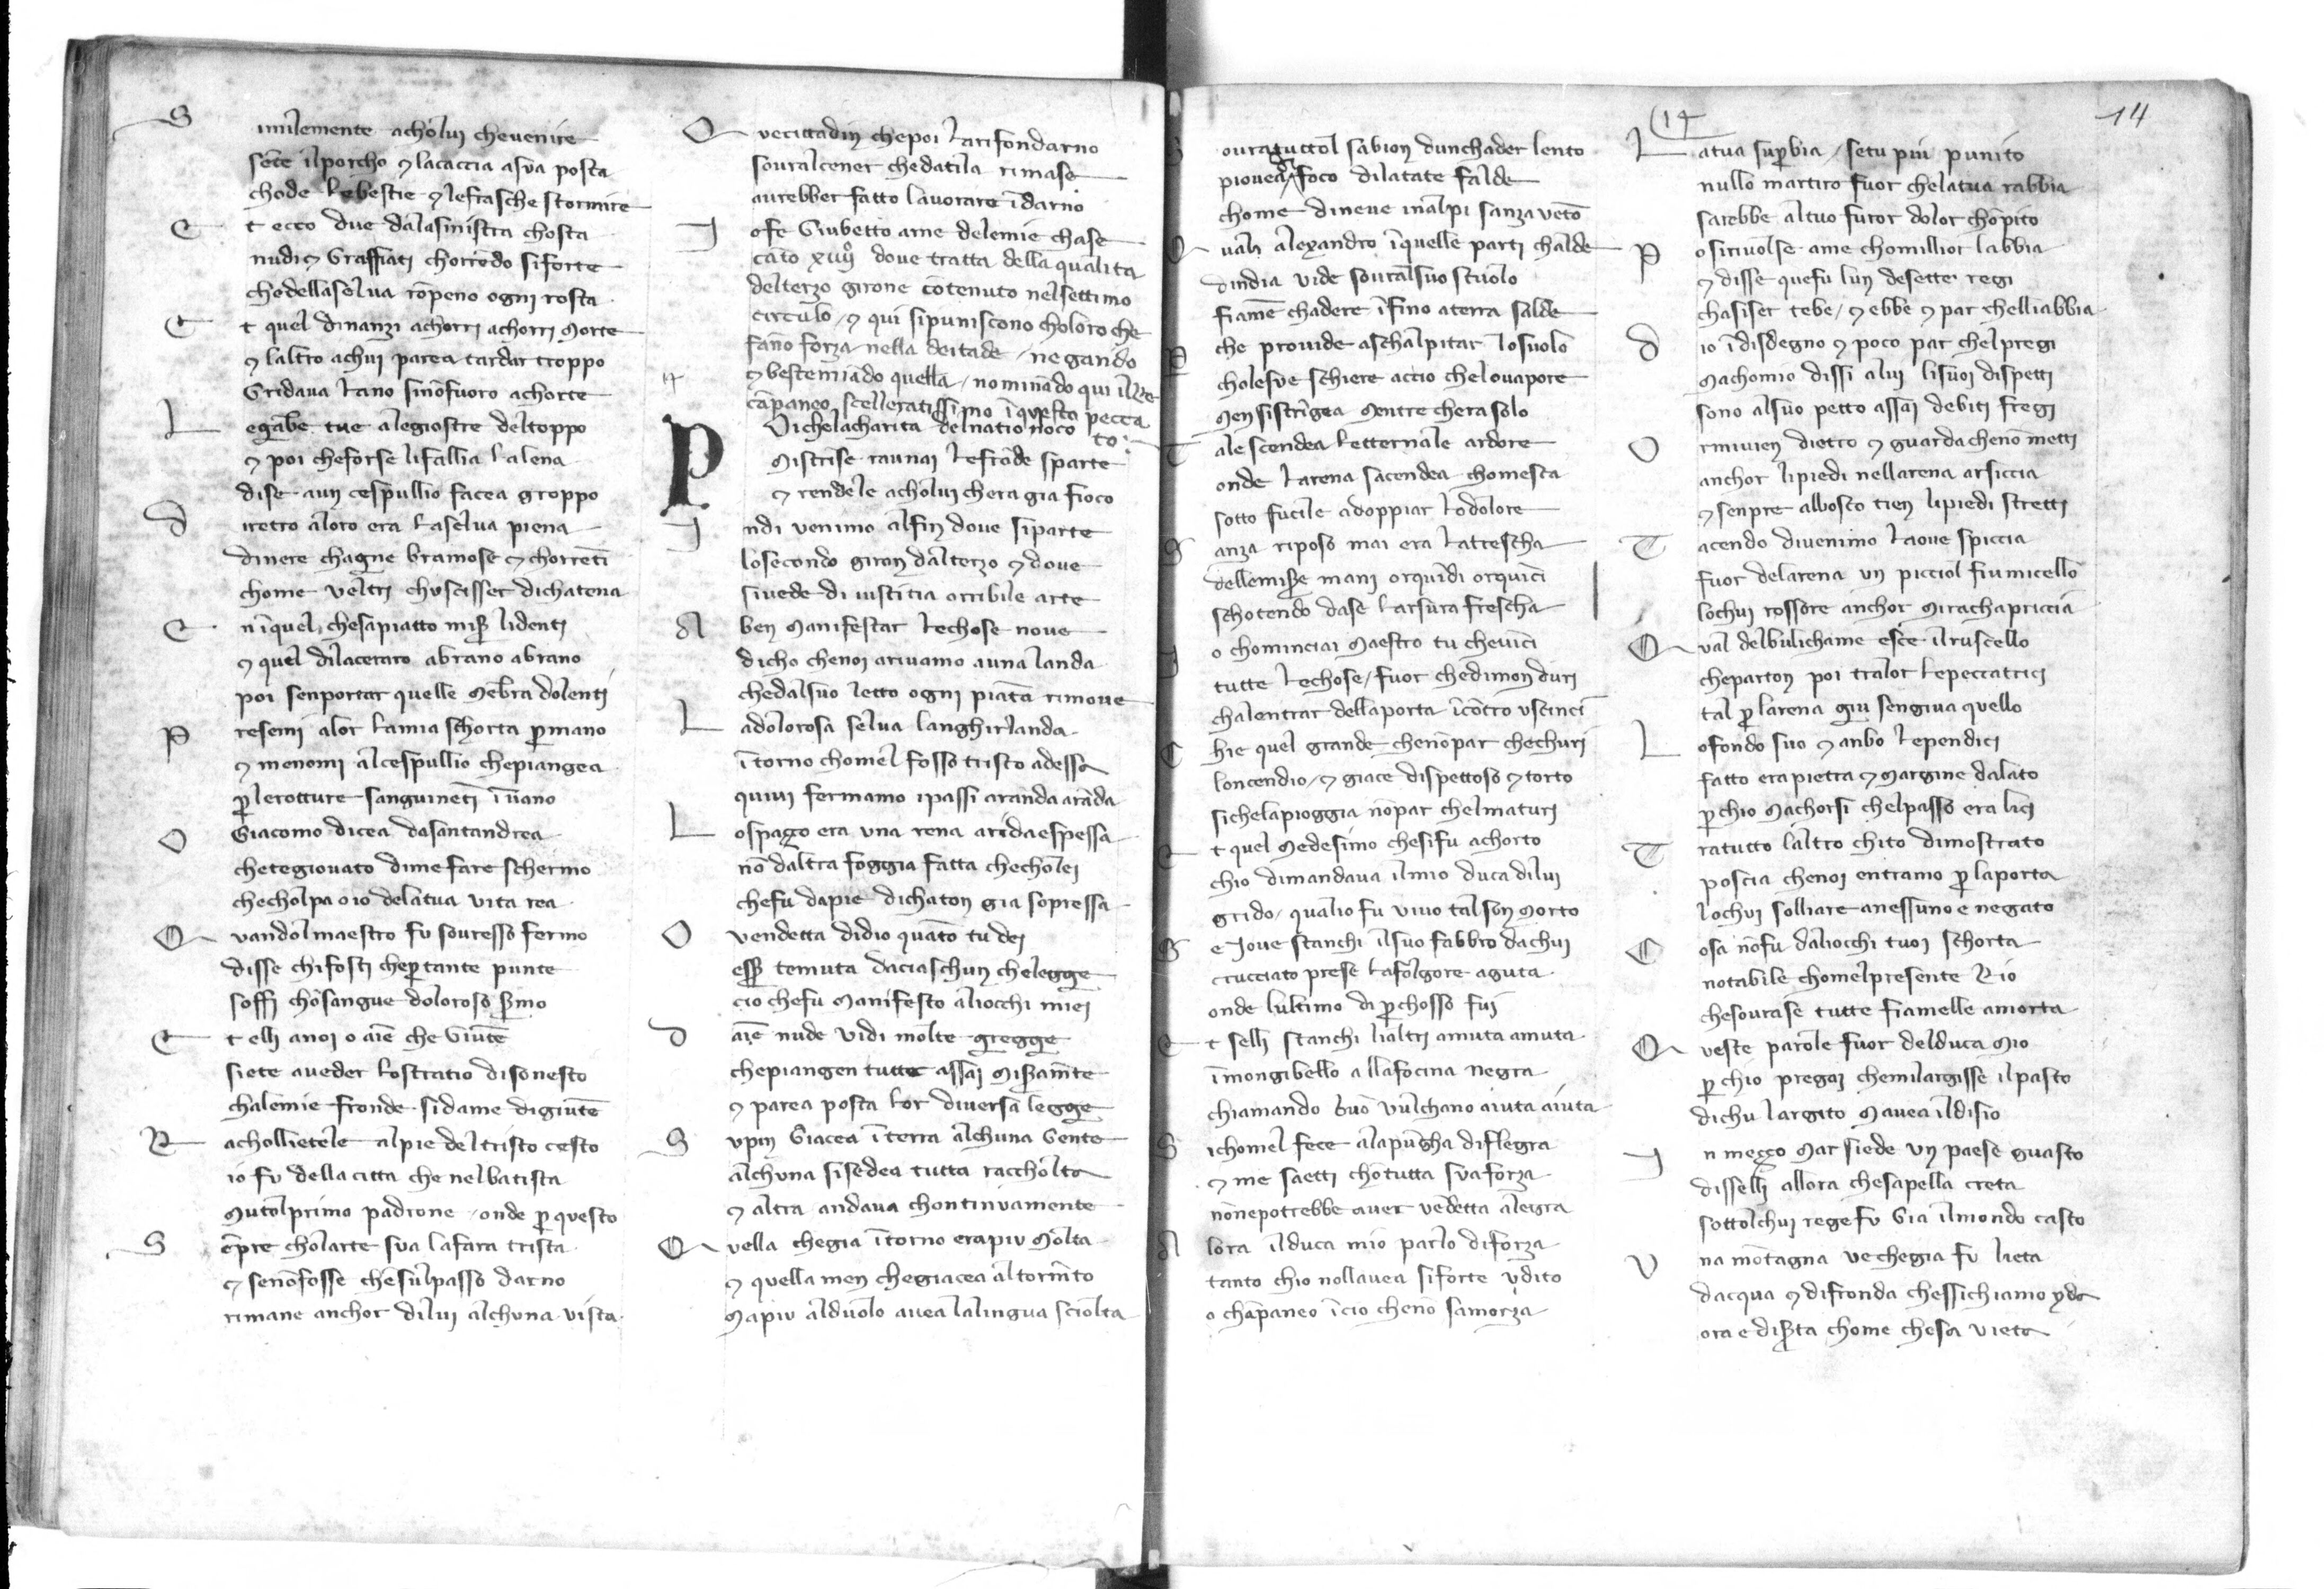 S imilemente acholuj chevenire
sēte ilporcho ⁊ lacaccia asva posta
chode lebestie ⁊ lefrasche stormire
E t ecco due dalasinistra chosta
nudi ⁊ Graffiati chorrēdo siforte
chedellaselua rōpeno ognj rosta
E t quel dinanzi achorrj achorrj morte
⁊ laltro achuj parea tardar troppo
Gridaua Lano sinōfuoro achorte
L egābe tue alegiostre deltoppo
⁊ poi cheforse lifallia lalena
dise aun cespullio facea groppo
D iretro aloro era laselua piena
dinere chagne bramose ⁊ chorrēti
chome veltrj chvscisser dichatena
E n īquel chesapiatto miser lidentj
⁊ quel dilaceraro abrano abrano
poi senportar quelle mēbra dolentj
P resemi alor lamia schorta p̱mano
⁊ menomi alcespullio chepiangea
p̱ lerotture sanguinēti ī uano
O Giacomo dicea dasantandrea
chetegiouato dime fare schermo
checholpa oio delatua vita rea
Q vandolmaestro fv souresso fermo
disse chifostj chep̱tante punte
soffj chōsangue doloroso sermo
E t ellj anoj o aīe che Giūte
siete aueder lostratio disonesto
chalemie fronde sidame digiūte
R acholietele alpie del tristo cesto
io fv dellacitta che nelbatista
mutolprimo padrone / onde p̱ questo
S ēpre cholarte sva lafara trista
⁊ senōfosse chesulpasso darno
rimane anchor diluj alchvna vista
Q vecittadin chepoi larifondarno
souralcener chedatila rimase
aurebber fatto lauorare īdarno
I ofe Giubetto ame delemie chase
cāto xiiij dove tratta della qualita
delterzo girone cōtenuto nelsettimo
circulo / ⁊ qui sipuniscono choloro che
fāno forza nella deitade / negando
⁊ bestemiādo quella / nominādo qui ilre
cāpaneo scelleratissimo īquesto pecca
to:
14
P Oichelacharita delnatio noco
mistrise raunaj lefrōde sparte
⁊ rendele acholuj chera gia fioco
I ndi venimo alfin dove siparte
losecondo giron dalterzo ⁊ dove
siuede di iustitia orribile arte
A ben manifestar lechose nove
dicho chenoj ariuamo auna landa
chedalsuo letto ognj piāta rimove
L adolorosa selua langhirlanda
ītorno chomel fosso tristo adessa
quiuj fermamo ipassi aranda arāda
L ospazo era vna rena aridaespessa
nō daltra foggia fatta checholej
chefu dapie dichaton gia sopressa
O vendetta didio quāto tu dej
esser temuta daciaschun chelegge
cio chefu manifesto aliocchi miej
D aīe nude vidi molte gregge
chepiangen tutte assaj miseramēte
⁊ parea posta lor diversa legge
S vpin Giacea īterra alchuna Gente
alchvna sisedea tutta raccholta
⁊ altra andava chontinvamente
Q vella chegia ītorno erapiv molta
⁊ quella men chegiacea altormēto
mapiv alduolo avea lalingua sciolta
14
14
S ouratuttol sabion dunchader lento
piovea di foco dilatate falde
chome dineve inalpi sanza vēto
Q valj alexandro īquelle partj chalde
dindia vide souralsuo stuolo
fiamē chadere īfino aterra salde
P che provide aschalpitar losuolo
cholesve schiere accio chelovapore
men sistrīgea mentre cherasolo
T ale scendea letternale ardore
onde larena sacendea chomesca
sotto fucile adoppiar lodolore
S anza riposo mai era latrescha
dellemisere manj orquīdi orquīci
schotendo dase larsura frescha
I o chominciai maestro tu chevīci
tutte lechose / fuor chedimon durj
chalentrar dellaporta īcōtro vscincī
C hie quel grande chenōpar chechurj
loncendio / ⁊ giace dispettoso ⁊ torto
sichelapioggia nōpar chelmaturj
E t quel medesimo chesifu achorto
chio dimandava ilmio duca diluj
grido / qualio fu vivo talson morto
S e Jove stanchi ilsuo fabbro dachuj
crucciato prese lafolgore aguta
onde lultimo di p̱chosso fuj
E t sellj stanchi lialtrj amuta amuta
īmongibello allafocina negra
chiamando buō vulchano aiuta aiuta
S ichomel fece alapūgha diflegra
⁊ me saetti chōtutta svaforza
nōnepotrebbe aver vēdetta alegra
A lora ilduca mio parlo diforza
tanto chio nollavea siforte vdito
o chāpaneo īcio chenō samorza
L atua sup̱bia / setu piu punito
nullo martiro fuor chelatua rabbia
sarebbe altuo furor dolor chōpito
P osirivolse ame chomillior labbia
⁊ disse quefu lun desette regi
chasiser tebe / ⁊ ebbe ⁊ par chelliabbia
D io ī disdegno ⁊ poco par chelpregi
machomio dissi aluj lisuoi dispetti
sono alsuo petto assaj debiti fregj
O rmivien dietro ⁊ guarda chenō metti
anchor lipiedi nellarena arsiccia
⁊ senpre albosco tien lipiedi stretti
T acendo divenimo laove spiccia
fuor delarena vn picciol fiumicello
lochuj rossore anchor mirachapriccia
Q val delbulichame esce ilruscello
cheparton poi tralor lepeccatricj
tal p̱ larena giu sengiva quello
L ofondo suo ⁊ anbo lependicj
fatto erapietra ⁊ margine dalato
p̱ chio machorsi chelpasso era licj
T ratutto laltro chito dimostrato
poscia chenoj entramo p̱ laporta
lochvj solliare anessuno e negato
C osa nōfu daliocchi tuoj schorta
notabile chomelpresente Rio
chesourase tutte fiamelle amorta
Q veste parole fuor delduca mio
p̱ chio pregaj chemilargisse ilpasto
dichu largito mavea ildisio
I n mezzo mar siede vn paese guasto
disselli allora chesapella creta
sottolchuj rege fv Gia ilmondo casto
V na mōtagna vechegia fv lieta
dacqua ⁊ difronda chessichiamo yda
ora e diserta chome chosa vieta